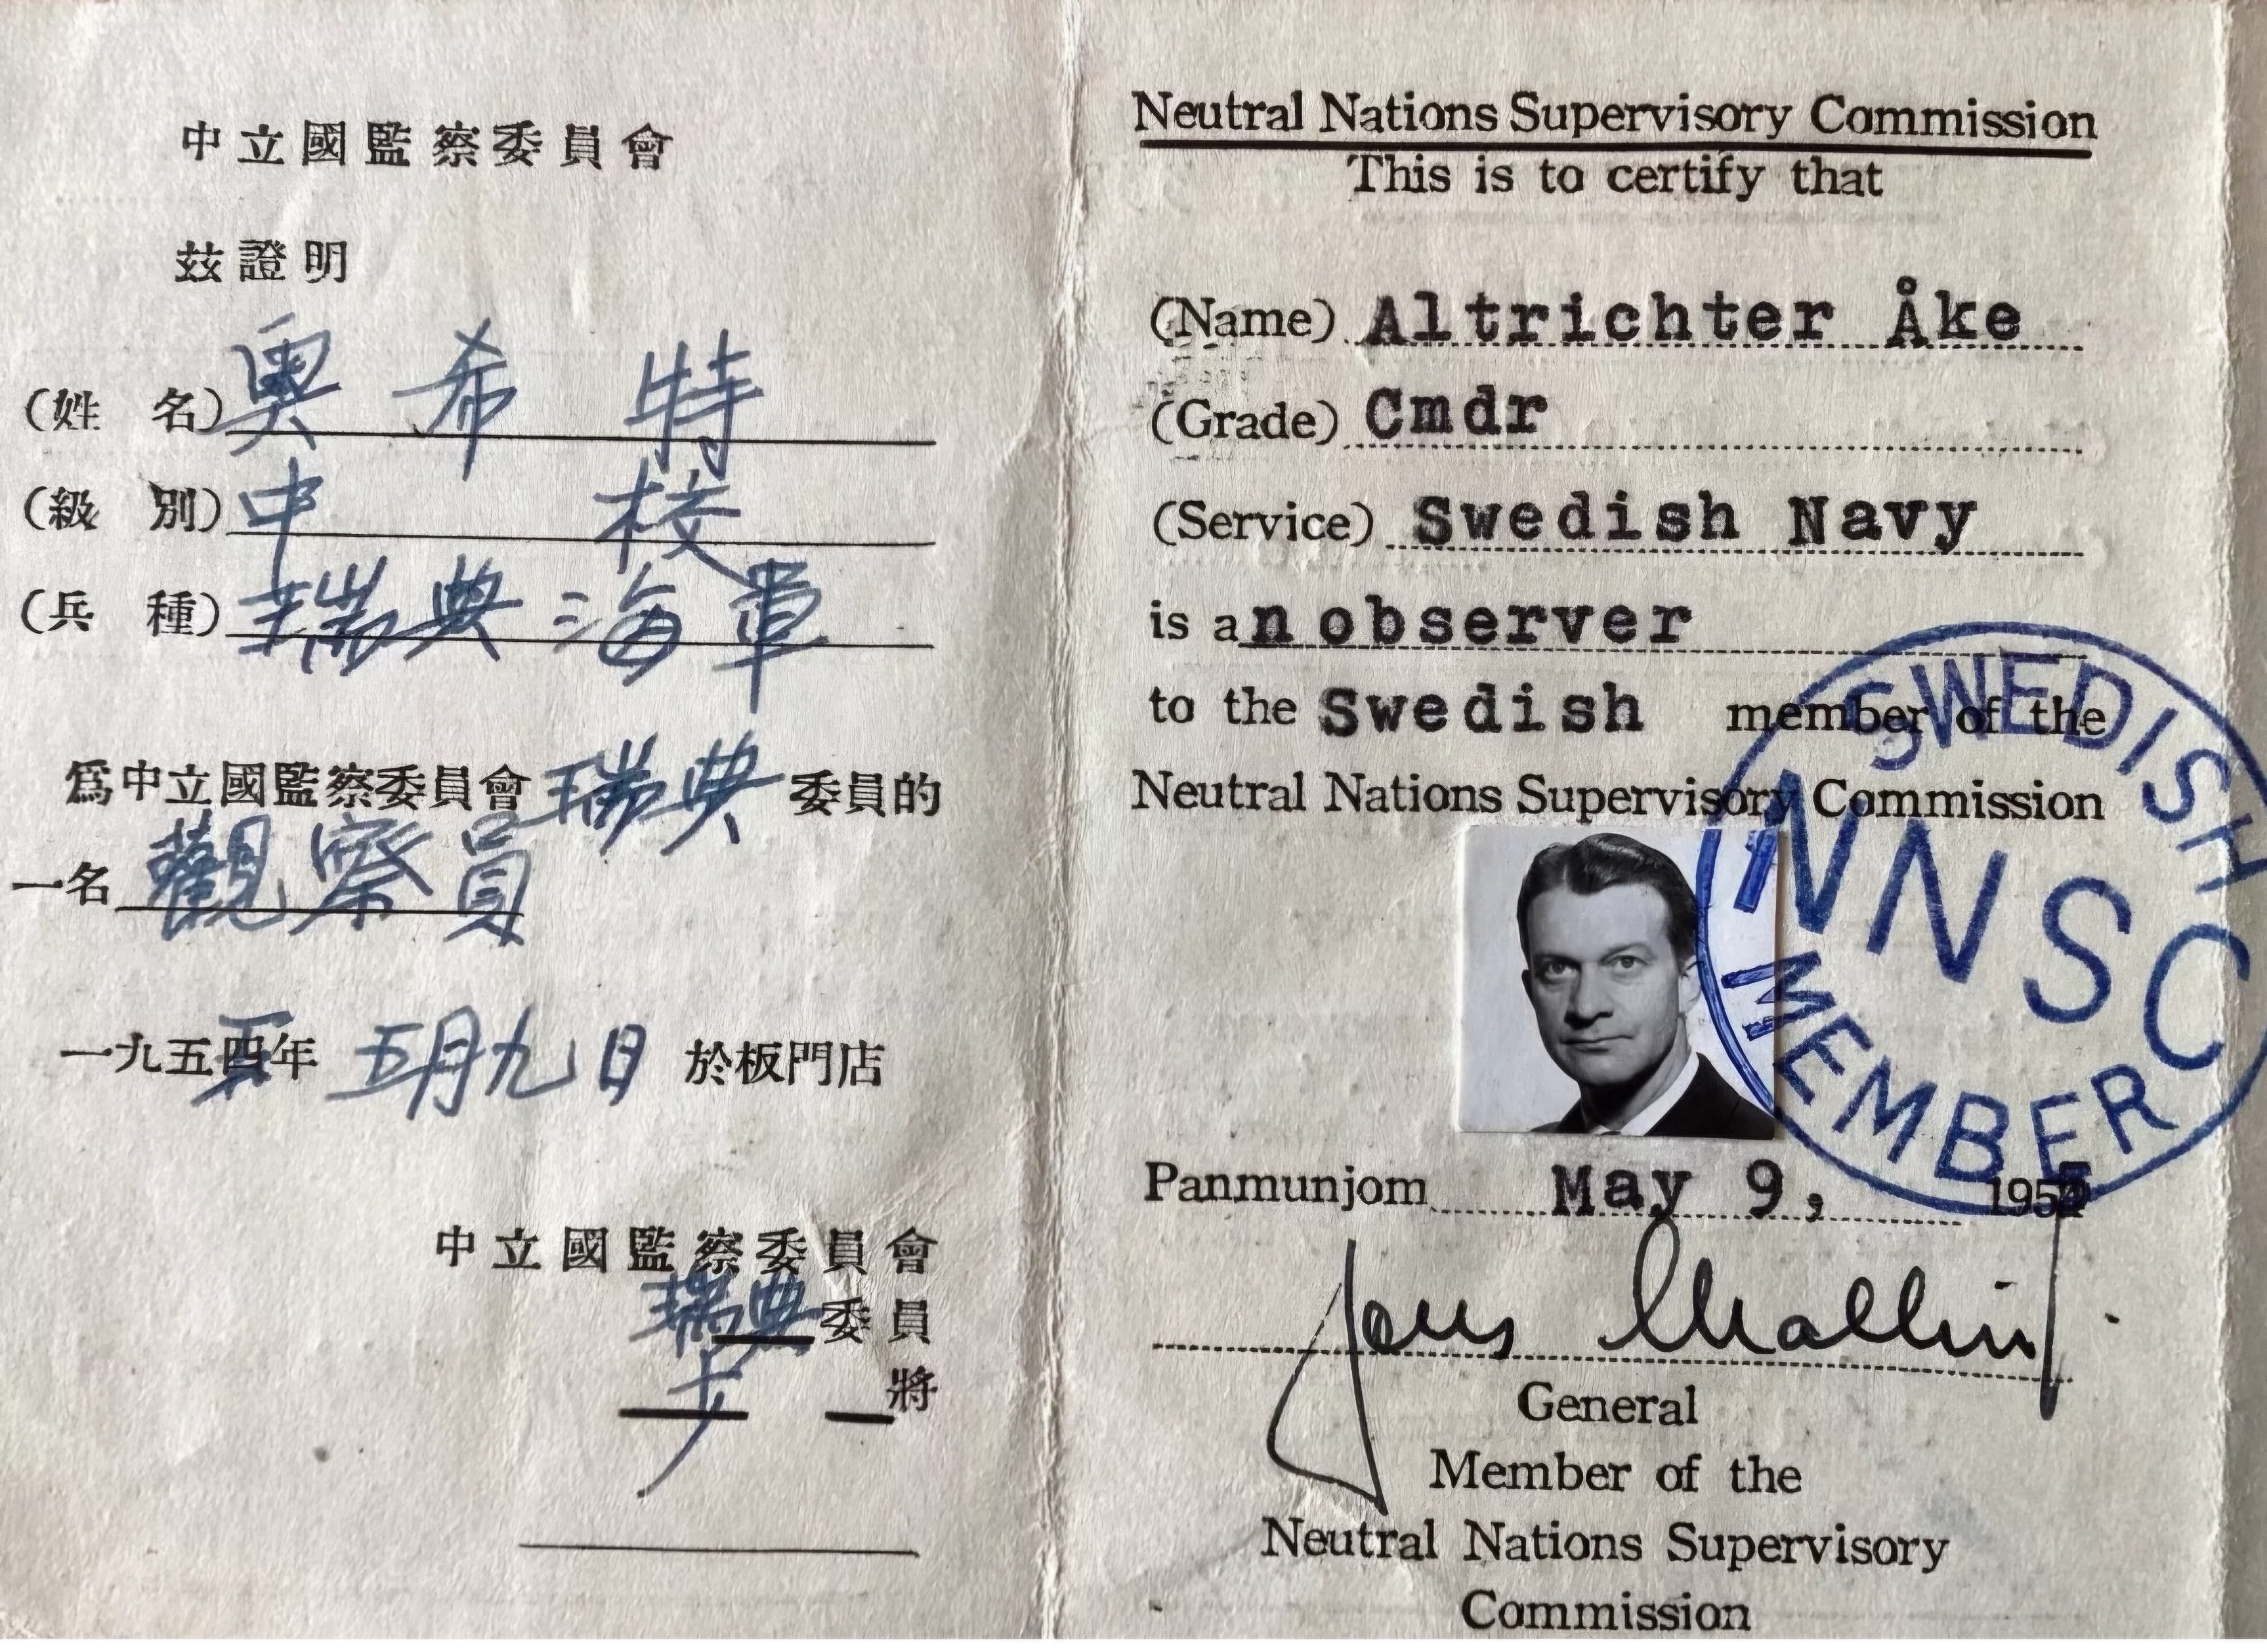 中立國監察委員會
茲證明
(姓 名) 奥希特
(級 別) 中校
(兵 種) 瑞典海軍
爲中立國監察委員會瑞典委員的
一名觀察員
一九五五年 五月九日 於板門店
中立國監察委員會
瑞典委員
少將
Neutral Nations Supervisory Commission
This is to certify that
(Name) Altrichter Åke
(Grade) Cmdr
(Service) Swedish Navy
is an observer
to the Swedish member of the
Neutral Nations Supervisory Commission
SWEDISH
NNSC
MEMBER
Panmunjom May 9, 1955
General
Member of the
Neutral Nations Supervisory
Commission